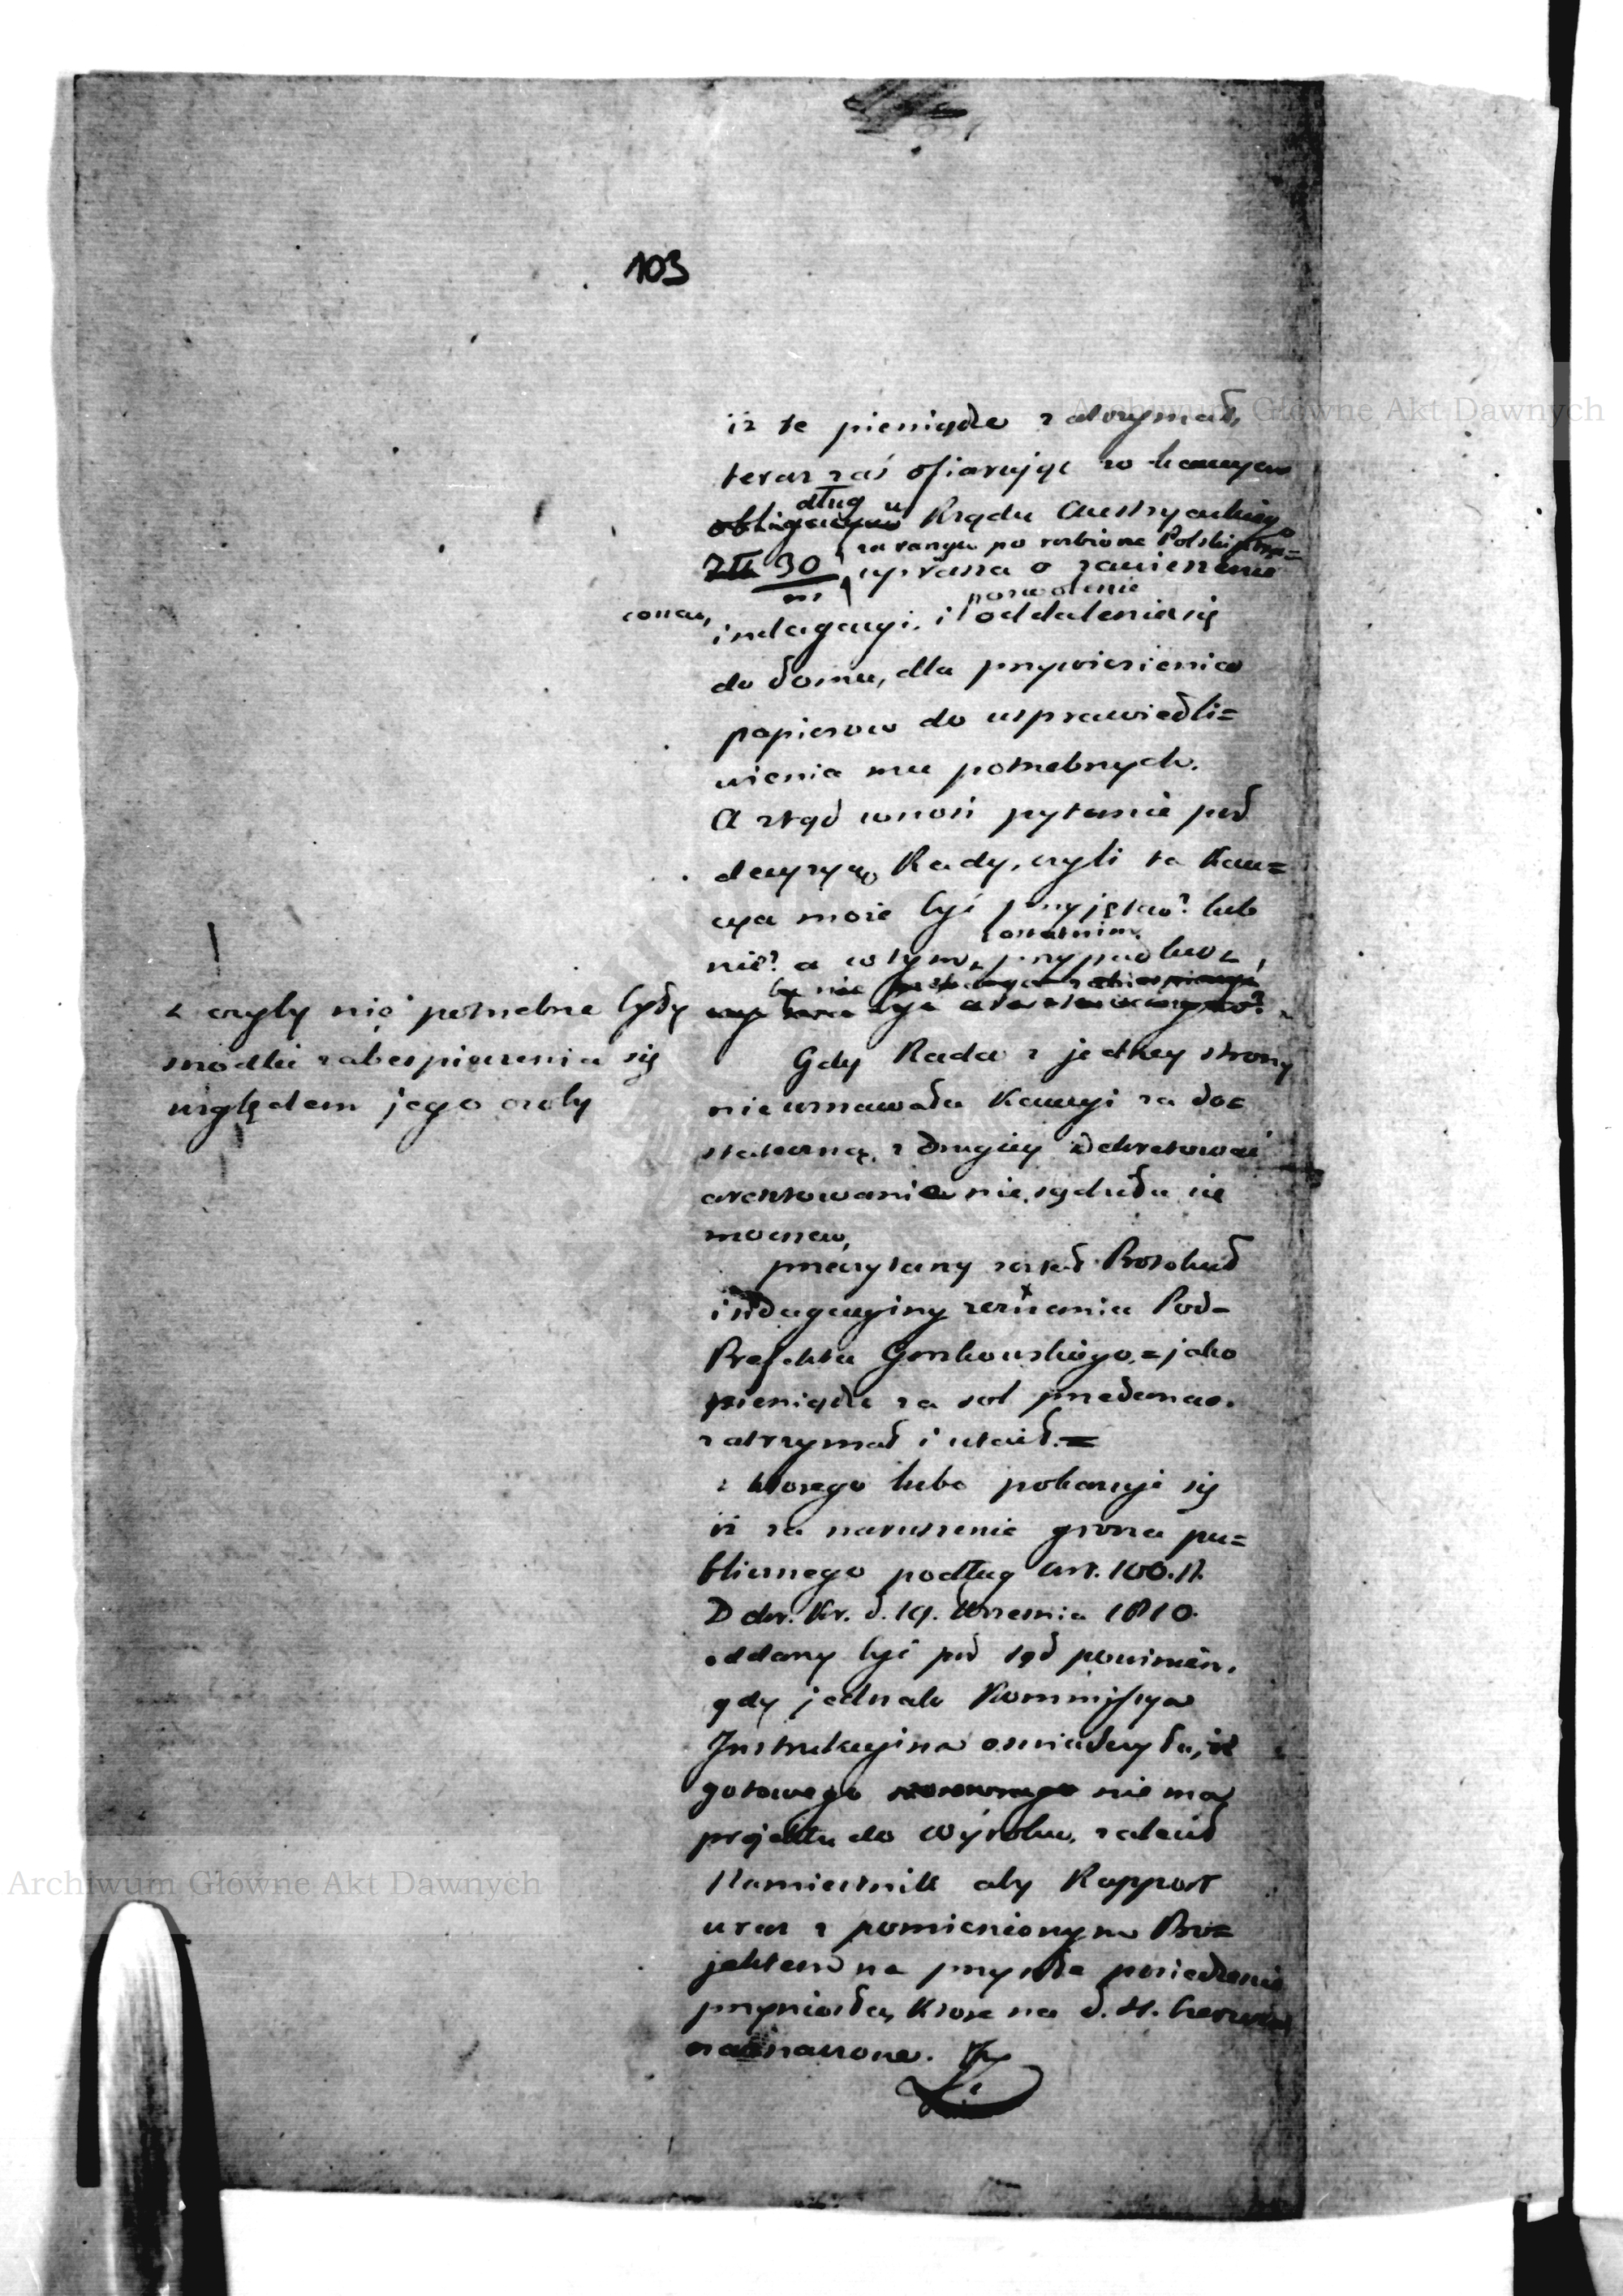 103
iż te pieniądze zatrzymał,
teraz zaś ofiarując w kaucyą
dług u
Rządu Austryackiego
za rangę po rozbiorze Polski
Zł 30 uprasza o zawieszenie
m/
pozwolenie
indagacyi. i oddalenia się
do domu, dla przywiezienia
papierow do usprawiedli=
wienia mu potrzebnych.
A ztąd wnosi pytanie pod
decyzyą Rady, czyli ta Kau=
cya może być przyjęta? lub
ostatnim
nie? a w tym przypadku
być aresztowanym?
z czyby nie potrzebne były
srodki zabespieczenia się
względem jego osoby
Gdy Rada z jedney strony
nie uznawała Kaucyi za do=
stateczną, z drugiey Dekretować
aresztowania nie sądziła się
mocna,
przeczytany został Protokuł
indagacyiny zeznania Pod=
Prefekta Gorzkowskiego, = jako
pieniądze za sol przedaną
zatrzymał i utaił. =
z ktorego lubo pokazuje się
iż za naruszenie grosza pu=
blicznego podług art. 100. N.
Dekr. Kr. d. 19. Wrzesnia 1810.
oddany być pod sąd powinien,
gdy jednak Kommissya
Instrukcyina oswiadczyła, iż
gotowego nie ma
projektu do Wyroku, zalecił
Namiestnik aby Rapport
wraz z pomienionym Pro=
jektem na przyszłe posiedzenie
przyniosła, Które na d. 4. Czerwca
naznaczone.